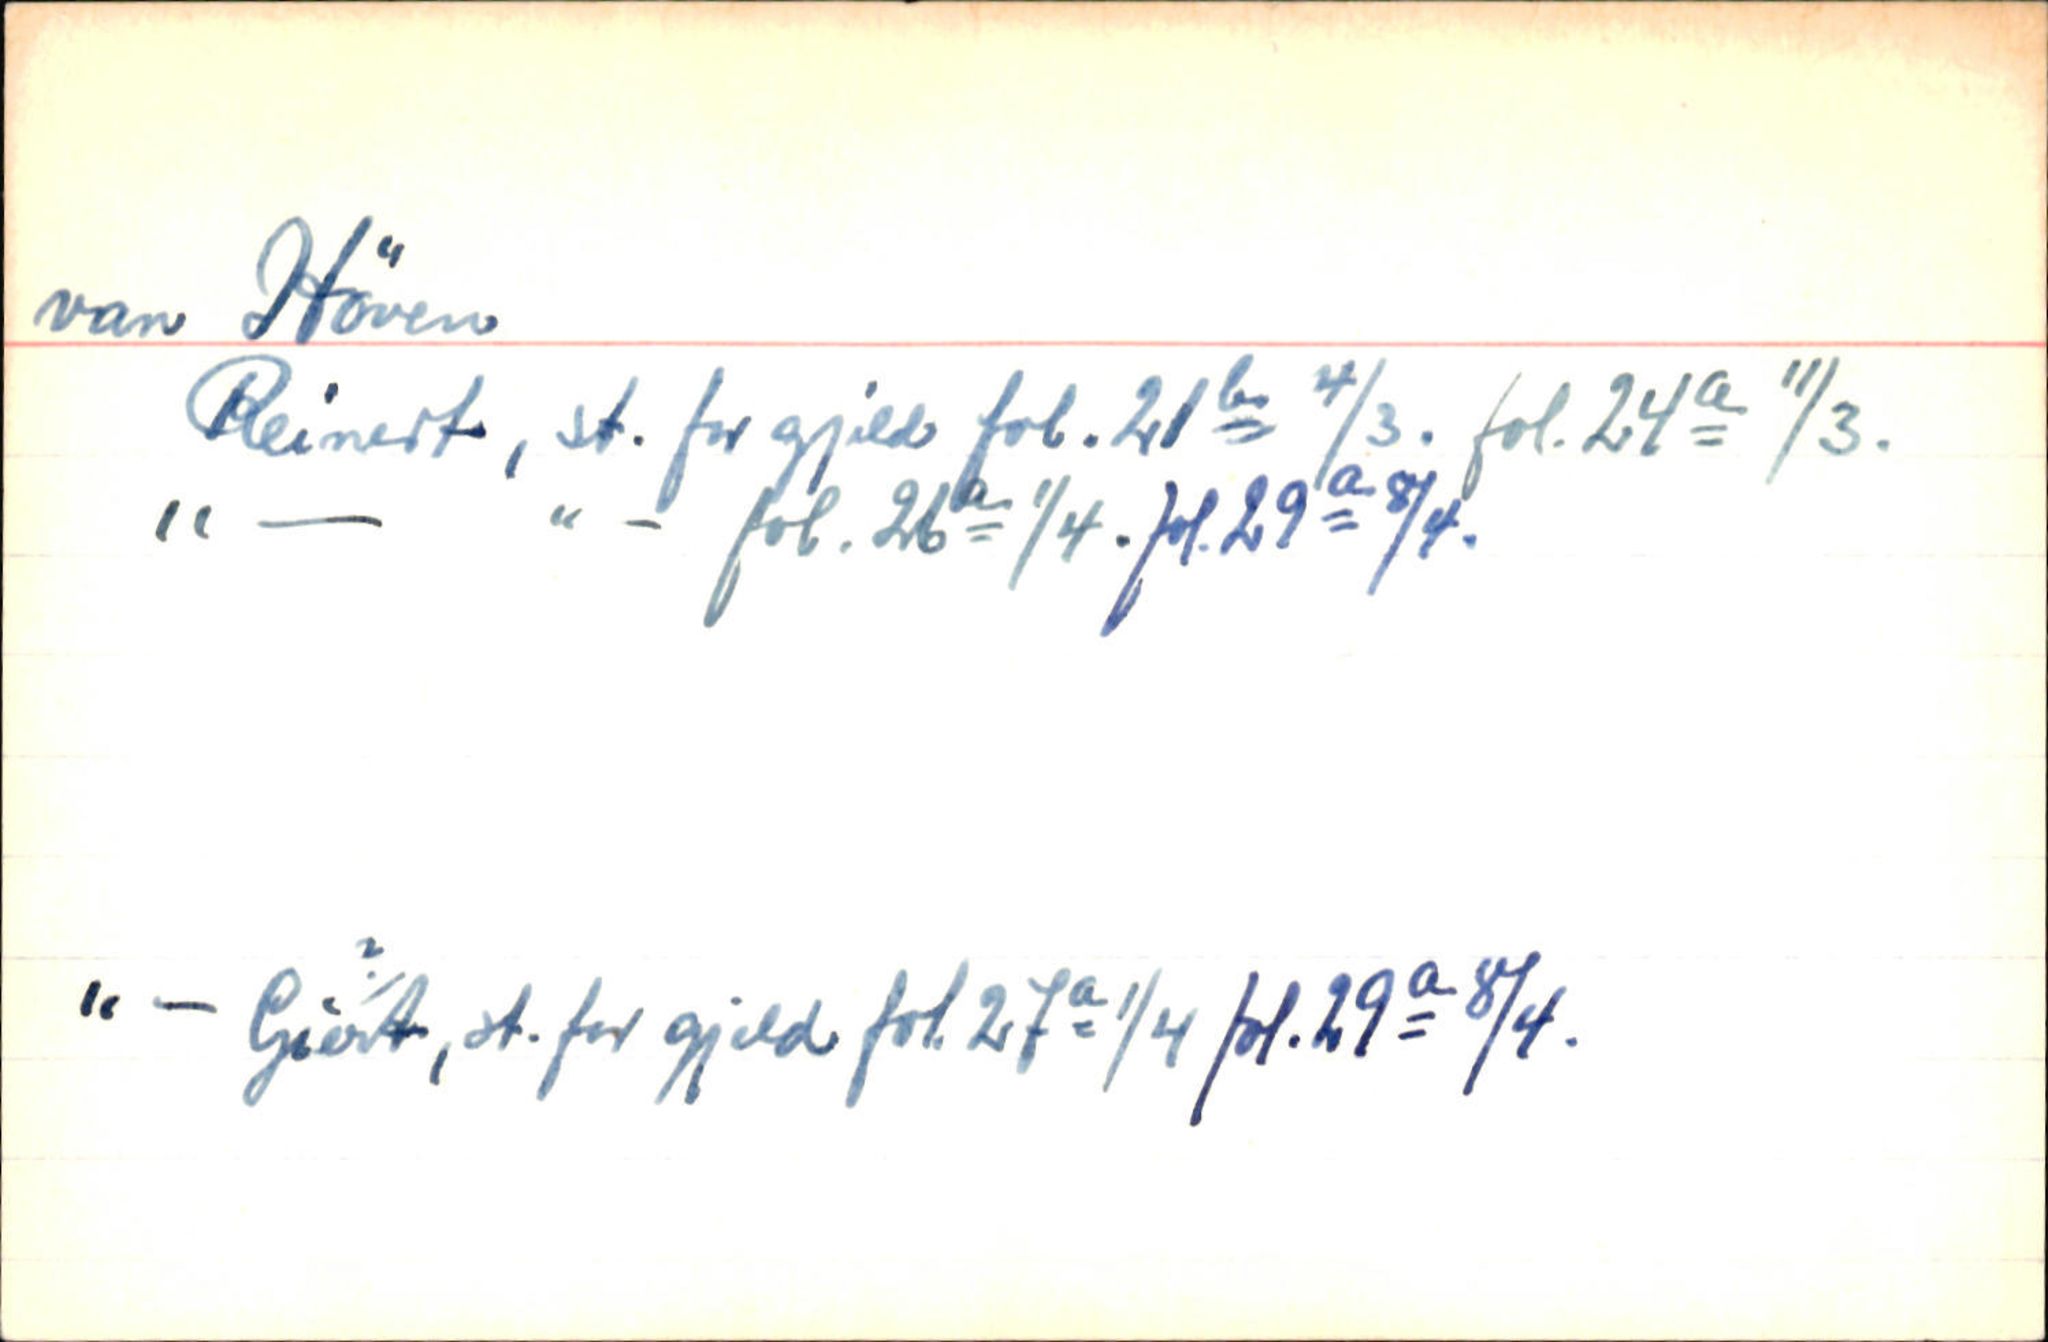 van Höven
Reinert, st. for gjeld fol. 21b 4/3. fol. 24a 11/3.
" — " - fol. 26a 1/4. fol. 29a 8/4.
" — Giert?, st. for gjeld fol. 27a 1/4 fol. 29a 8/4.